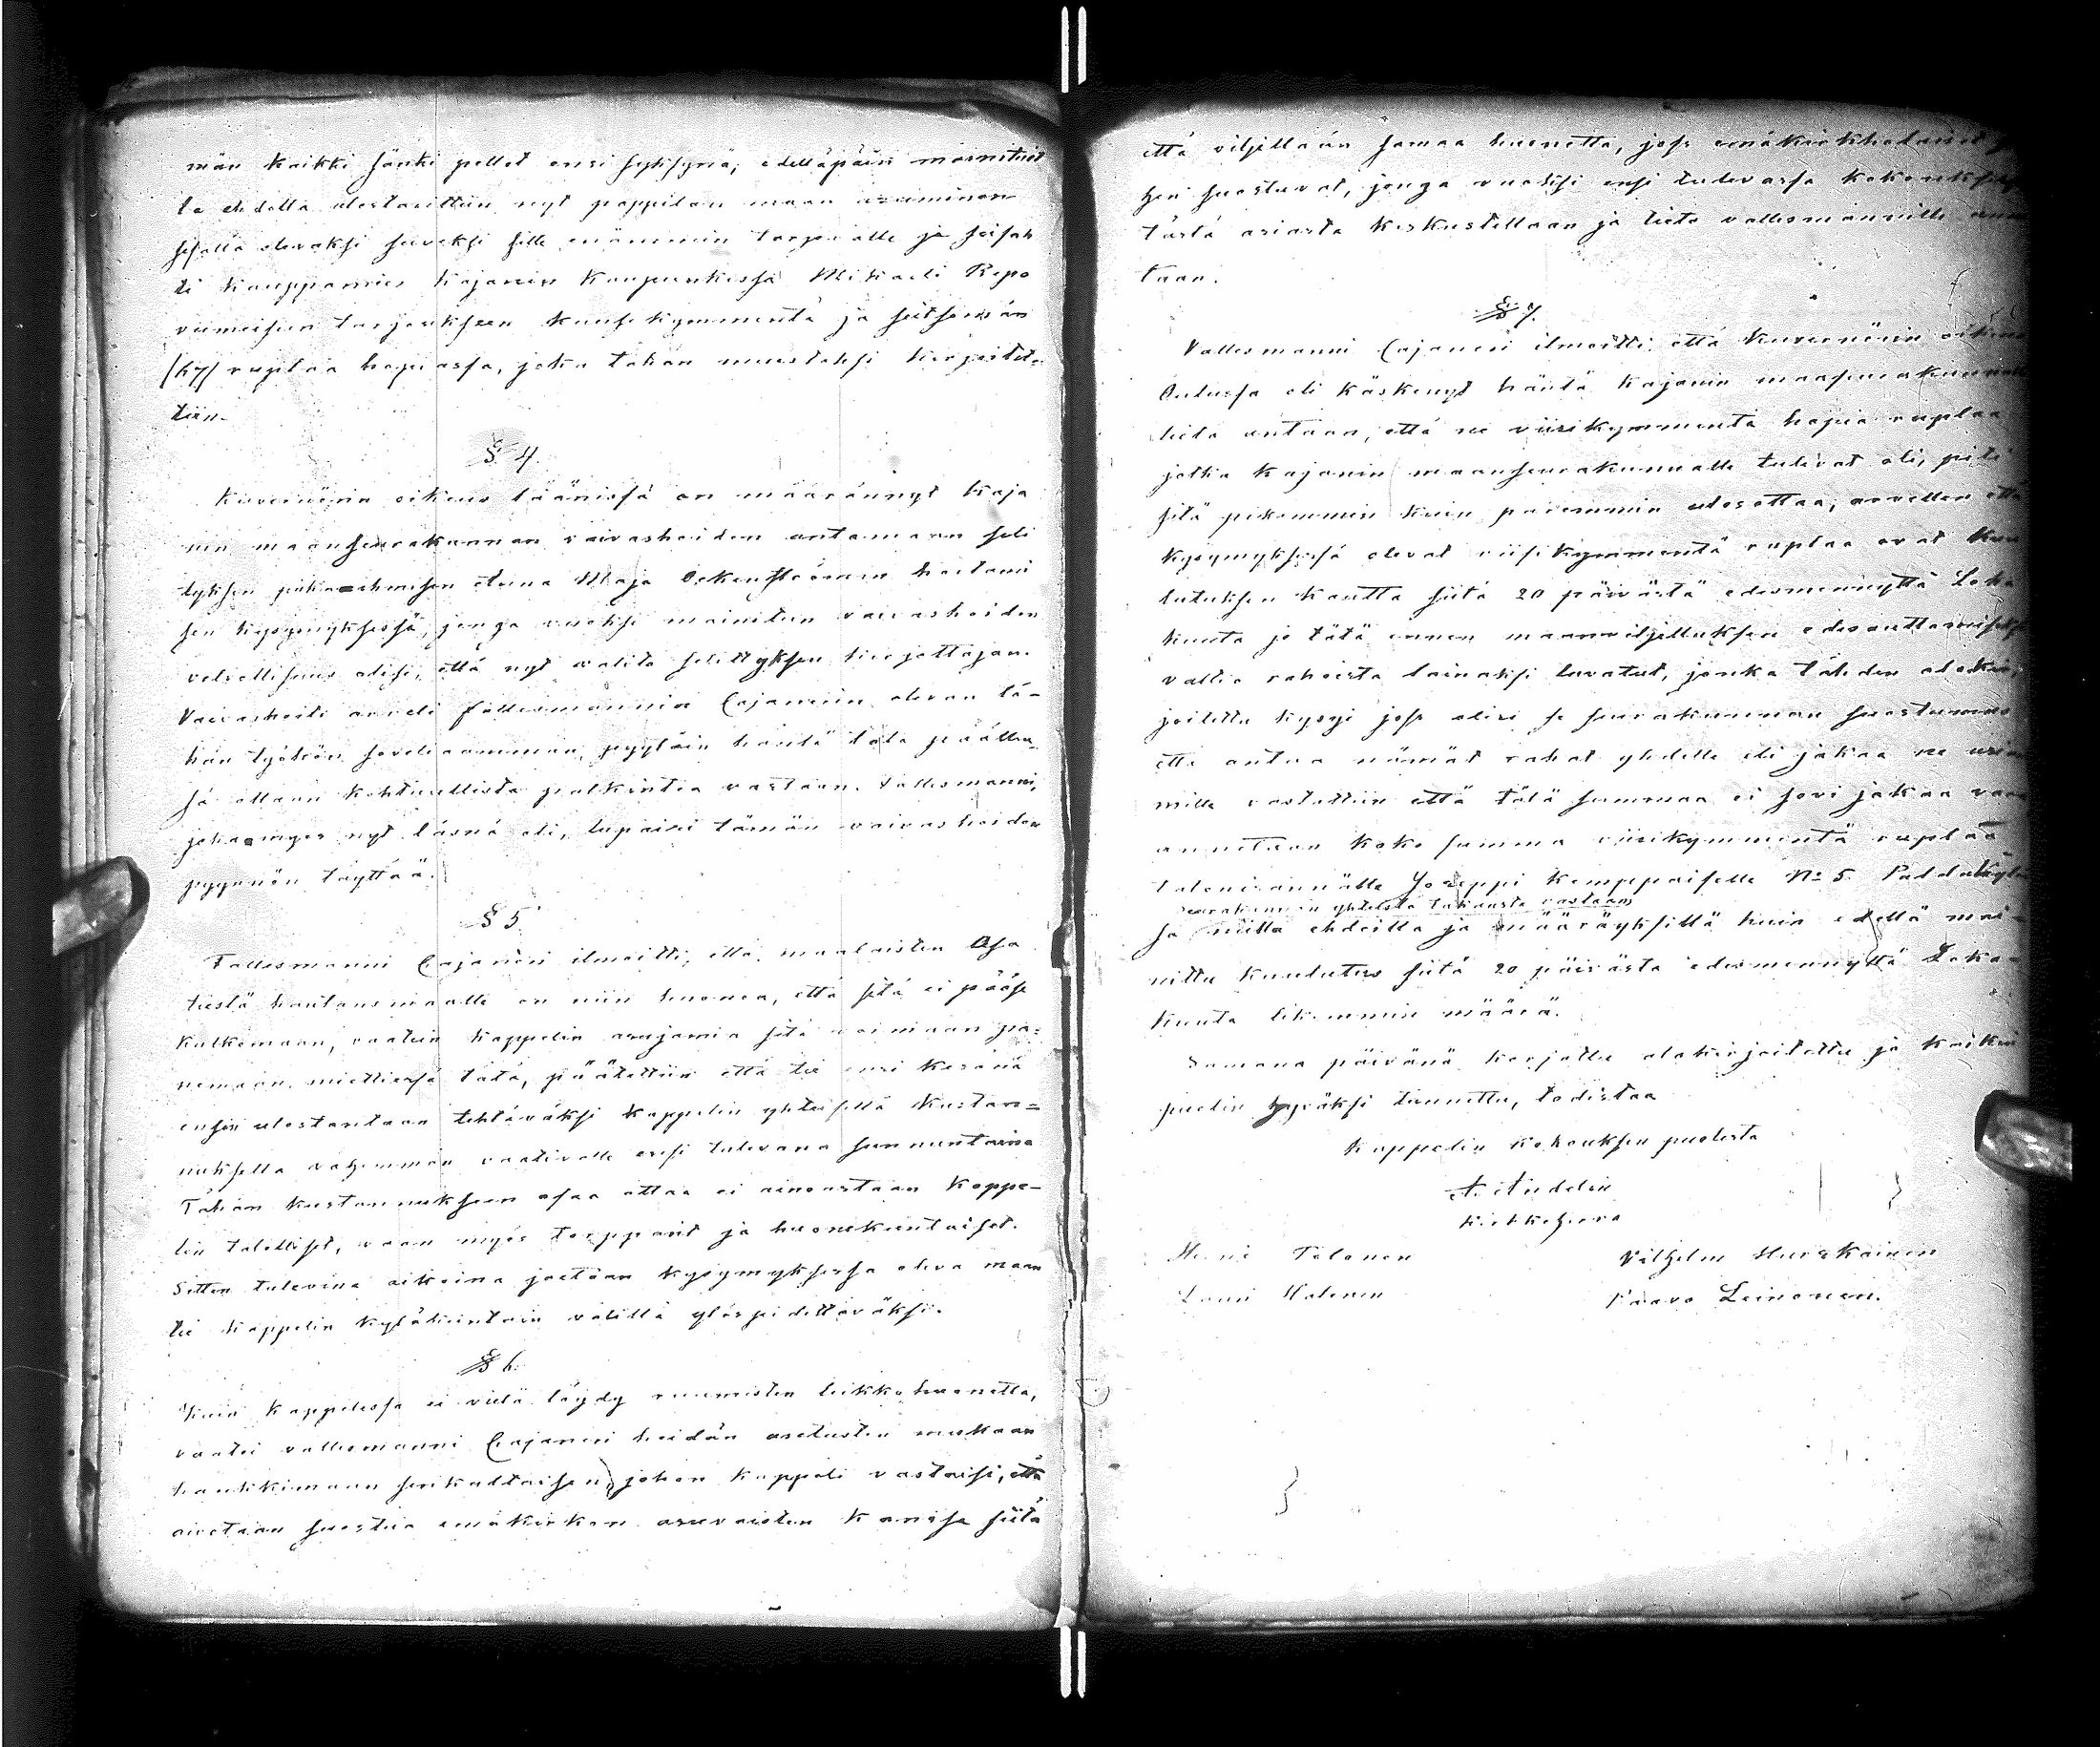 män kaikki sänki pellot ensi syksynä; edelläpäin mainituit
ta ehdolla ulostaottiin nyt pappilan maan asuminen
sillä olevaksi suveksi sille enämmin tarjovalle ja seisah
ti kauppamies Kajanin kaupunkissa Mikaeli Repo
viimeiseen tarjoukseen kuusikymmentä ja seitsemän
/67/ ruplaa hopiassa, joka tähän muistoksi kirjoitet-
tiin.
§ 4.
Kuvernörin oikeus läänissä on määrännyt Kaja
nin maanseurakunnan vaivashoidon antamaan seli
tyksen piika-ihmisen Maja hoitami
sen kysymyksessä, jonga vuoksi mainitun vaivashoidon
velvollisuus olisi, että nyt valita selittyksen kirjottajan.
Vaivashoito arveli fallesmannin Cajanerin olevan tä-
hän työhön soveliaamman, pyytäin häntä tätä päällen-
sä ottaan kohtuullista palkintoa vastaan. Vallesmanni,
joka myös nyt läsnä oli, lupaisi tämän vaivashoidon
pyynnön täyttää.
§ 5.
Fallesmanni Cajaneri ilmoitti, että maalaisten Osa
tiestä hautausmaalle on niin huonoa, että sitä ei pääse
kulkemaan, vaatein kappelin asujamia sitä voimaan pa-
nemaan. miettiessä tätä, päätettiin että tie ensi kesänä
ensin ulostantaan tehtäväksi kappelin yhteisellä kustan-
nuksella vähemmän vaativalle ensi tulevana sunnuntaina
Tähän kustannukseen osaa ottaa ei ainoastaan kappe-
lin talolliset, vaan myös torpparit ja huonekuntaiset.
Sitten tulevina aikoina jaetaan kysymyksessä oleva maan
tie kappelin kyläkuntain välillä ylöspidettäväksi.
§ 6.
Kuin kappelissa ei vielä löydy ruumisten leikkohuonetta,
vaatei vallesmanni Cajaneri heidän asetusten mukaan
hankkimaan senkaltaisen, johon kappeli vastaisi, että
aivotaan suostua emäkirkon asuvaisten kanssa siitä
että viljellään samaa huonetta, jos emäkirkkolaiset
hen suostuvat, jonga vuoksi ensi tulevassa kokouksessa
tästä asiasta keskustellaan ja tieto vallesmannille anne
taan.
§ 7.
Vallesmanni Cajaneri ilmoitti että kuvernörin oikeus
Oulussa oli käskenyt häntä Kajanin maaseurakunnalle
tietä antaan, että ne viisikymmentä hopia ruplaa
jotka Kajanin maanseurakunnalle tulevat oli, piti
sitä pikemmin kuin paremmin ulosottaa, arvellen että
kysymyksessä olevat viisikymmentä ruplaa ovat kuu
lutuksen kautta siitä 20 päivästä edesmennyttä Loka
kuuta jo tätä ennen maanviljelluksen edesauttamiseksi
valtio rahoista lainaksi luvatut, jonka tähden alakir
joitettu kysyi jos olisi se seurakunnan suostumus
että antaa nämät rahat yhdelle eli jakaa ne usia
mille vastattiin että tätä summaa ei sovi jakaa vaan
annetaan koko summa viisikymmentä ruplaa
talonisännälle Joseppi Kemppaiselle No 5. Paddakylä
seurakunnan yhteistä takausta vastaan
sä niillä ehdoilla ja määräyksillä kuin edellä mai-
nittu kuulutus siitä 20 päivästä edesmennyttä Loka-
kuuta likemmin määrä.
Samana päivänä korjattu alakirjoitettu ja kaikin
puolin hyväksi tunnettu, todistaa
Kappelin kokouksen puolesta
Kirkkoherra
Talonen Vilhelm Hurskainen
Lauri Halonen Paavo Leinonen.